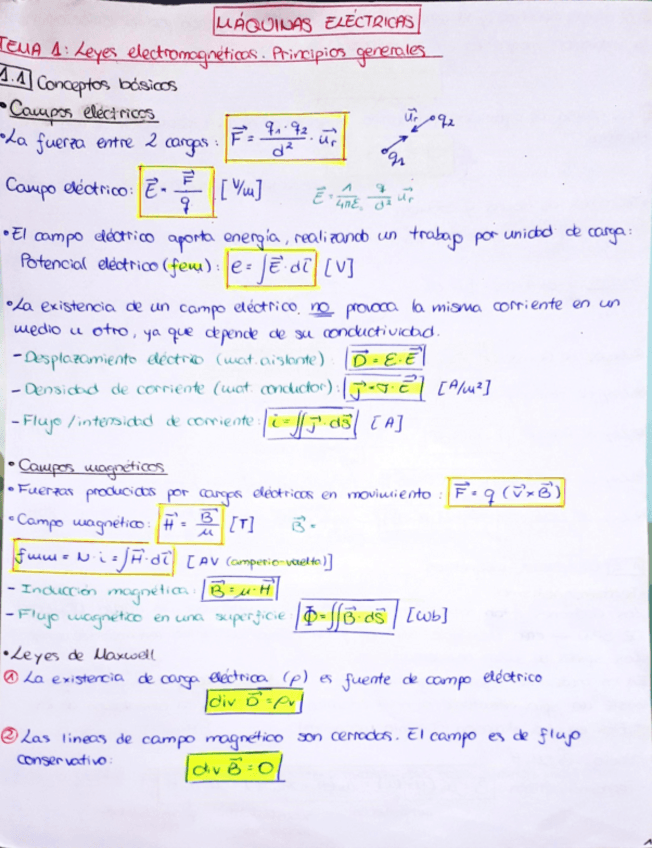 MÁQUINAS ELÉCTRICAS
TEMA 1: Leyes electromagnéticas. Principios generales
1.1 Conceptos básicos
• Campos eléctricos
• La fuerza entre 2 cargas: F⃗ = q₁·q₂/d² · u⃗r
u⃗r q₂
q₁
Campo eléctrico: E⃗ = F⃗/q [V/m] E⃗ = 1/4πε₀ q/d² u⃗r
• El campo eléctrico aporta energía, realizando un trabajo por unidad de carga:
Potencial eléctrico (fem): e = ∫E⃗·dl⃗ [V]
• La existencia de un campo eléctrico no provoca la misma corriente en un
medio u otro, ya que depende de su conductividad.
- Desplazamiento eléctrico (mat. aislante): D⃗ = ε·E⃗
- Densidad de corriente (mat. conductor): J⃗ = σ·E⃗ [A/m²]
- Flujo/intensidad de corriente: i = ∬J⃗·dS⃗ [A]
• Campos magnéticos
• Fuerzas producidas por cargas eléctricas en movimiento: F⃗ = q (v⃗×B⃗)
• Campo magnético: H⃗ = B⃗/μ [T] B⃗ =
fmm = N·i = ∫H⃗·dl⃗ [AV (amperio-vuelta)]
- Inducción magnética: B⃗ = μ·H⃗
- Flujo magnético en una superficie: Φ = ∬B⃗·dS⃗ [Wb]
• Leyes de Maxwell
① La existencia de carga eléctrica (ρ) es fuente de campo eléctrico
div D⃗ = ρv
② Las lineas de campo magnético son cerradas. El campo es de flujo
conservativo: div B⃗ = 0